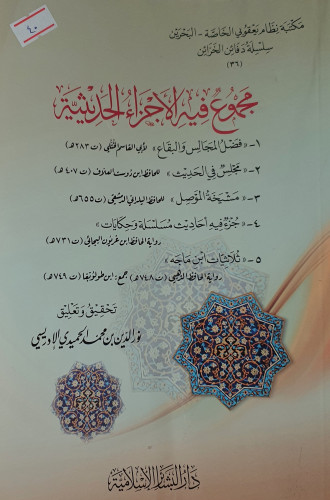 ٤٠
مكتبة نظام يعقوبي الخاصة - البحرين
سلسلة دفائن الخزائن
(٣٦)
مجموع فيه الأجزاء الحديثية
١- «فضل المجالس والبقاع» لأبي القاسم الختلي (ت ٢٨٣هـ)
٢- «مجلس في الحديث» للحافظ ابن دوست العلاف (ت ٤٠٧هـ)
٣- «مشيخة الموصل» للحافظ اليلداني الدمشقي (ت ٦٥٥هـ)
٤- «جزء فيه أحاديث مسلسلة وحكايات»
رواية الحافظ ابن غريون البجائي (ت ٧٣١هـ)
٥- «ثلاثيات ابن ماجه»
رواية الحافظ الذهبي (ت ٧٤٨هـ) جمع: ابن طولوبغا (ت ٧٤٩هـ)
تحقيق وتعليق
نور الدين بن محمد الحميدي الإدريسي
دار البشائر الإسلامية